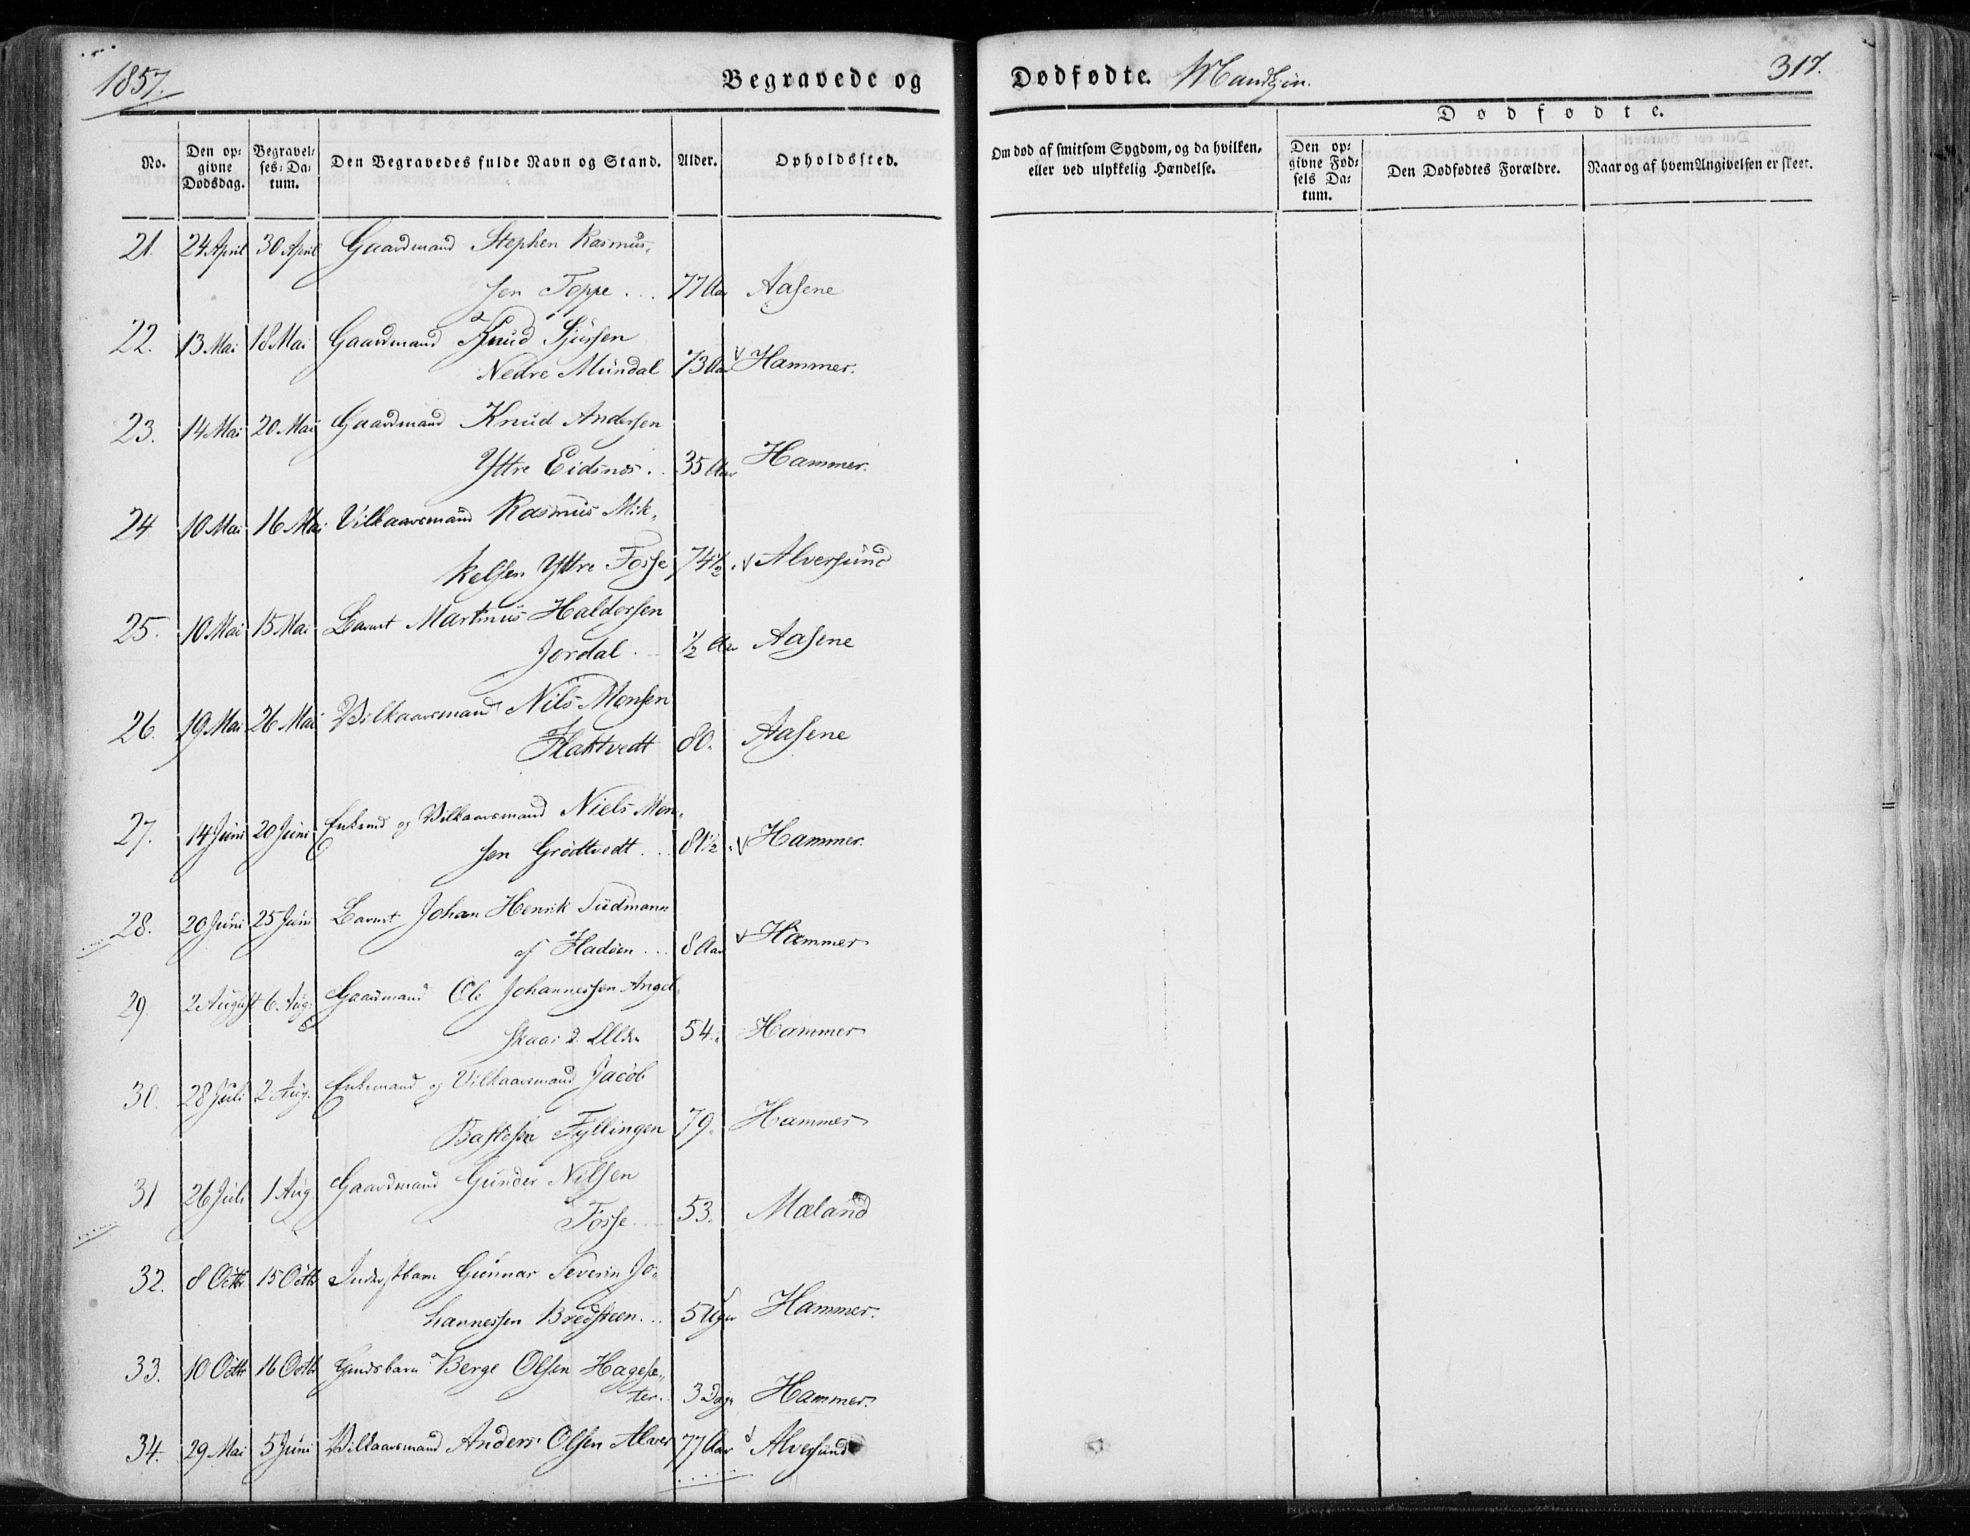 1857.
Begravede og Dødfødte. Mandkjøn. 317.
Dødfødte.
No. Den opgivne Dødsdag. Begravelses-Datum. Den Begravedes fulde Navn og Stand. Alder. Opholdssted. Om død af smitsom Sygdom, og da hvilken, eller ved ulykkelig Hændelse. Den opgivne Fødsels Datum. Den Dødfødtes Forældre. Naar og af hvem Angivelsen er skeet.
21. 24 April 30 April Gaardmand Stephen Rasmus-
sen Toppe ... 77 Aar Aasene
22. 13 Mai 18 Mai Gaardmand Knud Sjursen
Nedre Mundal 73 Aar Hammer.
23. 14 Mai 20 Mai Gaardmand Knud Andersen
Yttre Eidsnes .. 35 Aar Hammer.
24 10 Mai 16 Mai Vilkaarsmand Rasmus Mik-
kelsen Yttre Fosse 74½ Alversund
25. 10 Mai 15 Mai Barnet Martinus Haldorsen
Jordal ... ½ Aar Aasene
26. 19 Mai 26 Mai Vilkaarsmand Nils Monsen
Flaktvedt 80. Aasene
27. 14 Juni 20 Juni Enkemd og Vilkaarsmand Niels Mon-
sen Grødtvedt ... 81½ Hammer.
28. 20 Juni 25 Juni Barnet Johan Henrik Sudmann
af Fladøen ... 8 Aar Hammer
29. 2 August 6 Aug: Gaardmand Ole Johannessen Angel-
skaar 54. Hammer
30. 28 Juli 2 Aug. Enkemand og Vilkaarsmand Jacob
Bastesen Fyllingen 79. Hammer
31 26 Juli 1 Aug Gaardmand Gunder Nilsen
Fosse ... 53. Mæland
32. 8 Octbr 15 Octbr Inderstbarn Gunnar Severin Jo-
hannessen Bredsteen ... 5 Uger Hammer.
33. 10 Octbr 16 Octbr Berge Olsen Hagese-
ter. 3 Dage Hammer.
34. 29 Mai 5 Juni Vilkaarsmand Anders Olsen Alver 77 Aar Alversund